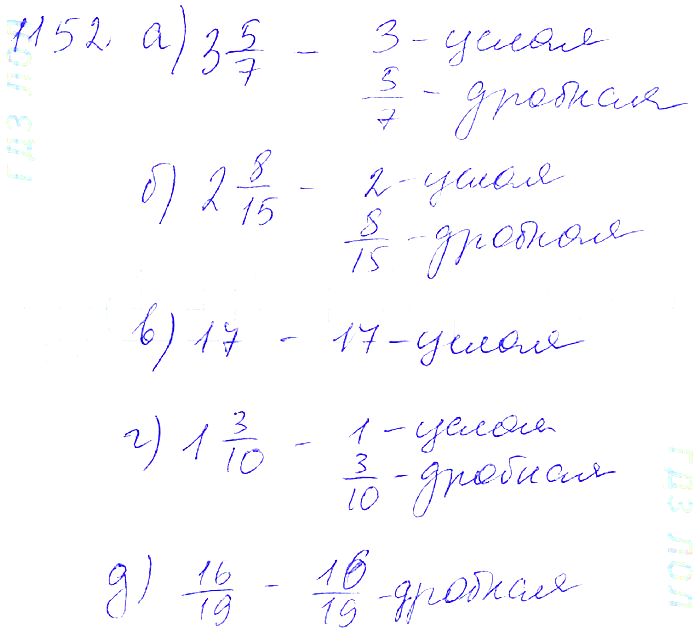 1152. а) 3 5/7 – 3 – целая
5/7 – дробная
б) 2 8/15 – 2 – целая
8/15 – дробная
в) 17 – 17 – целая
г) 1 3/10 – 1 – целая
3/10 – дробная
д) 16/19 – 16/19 – дробная